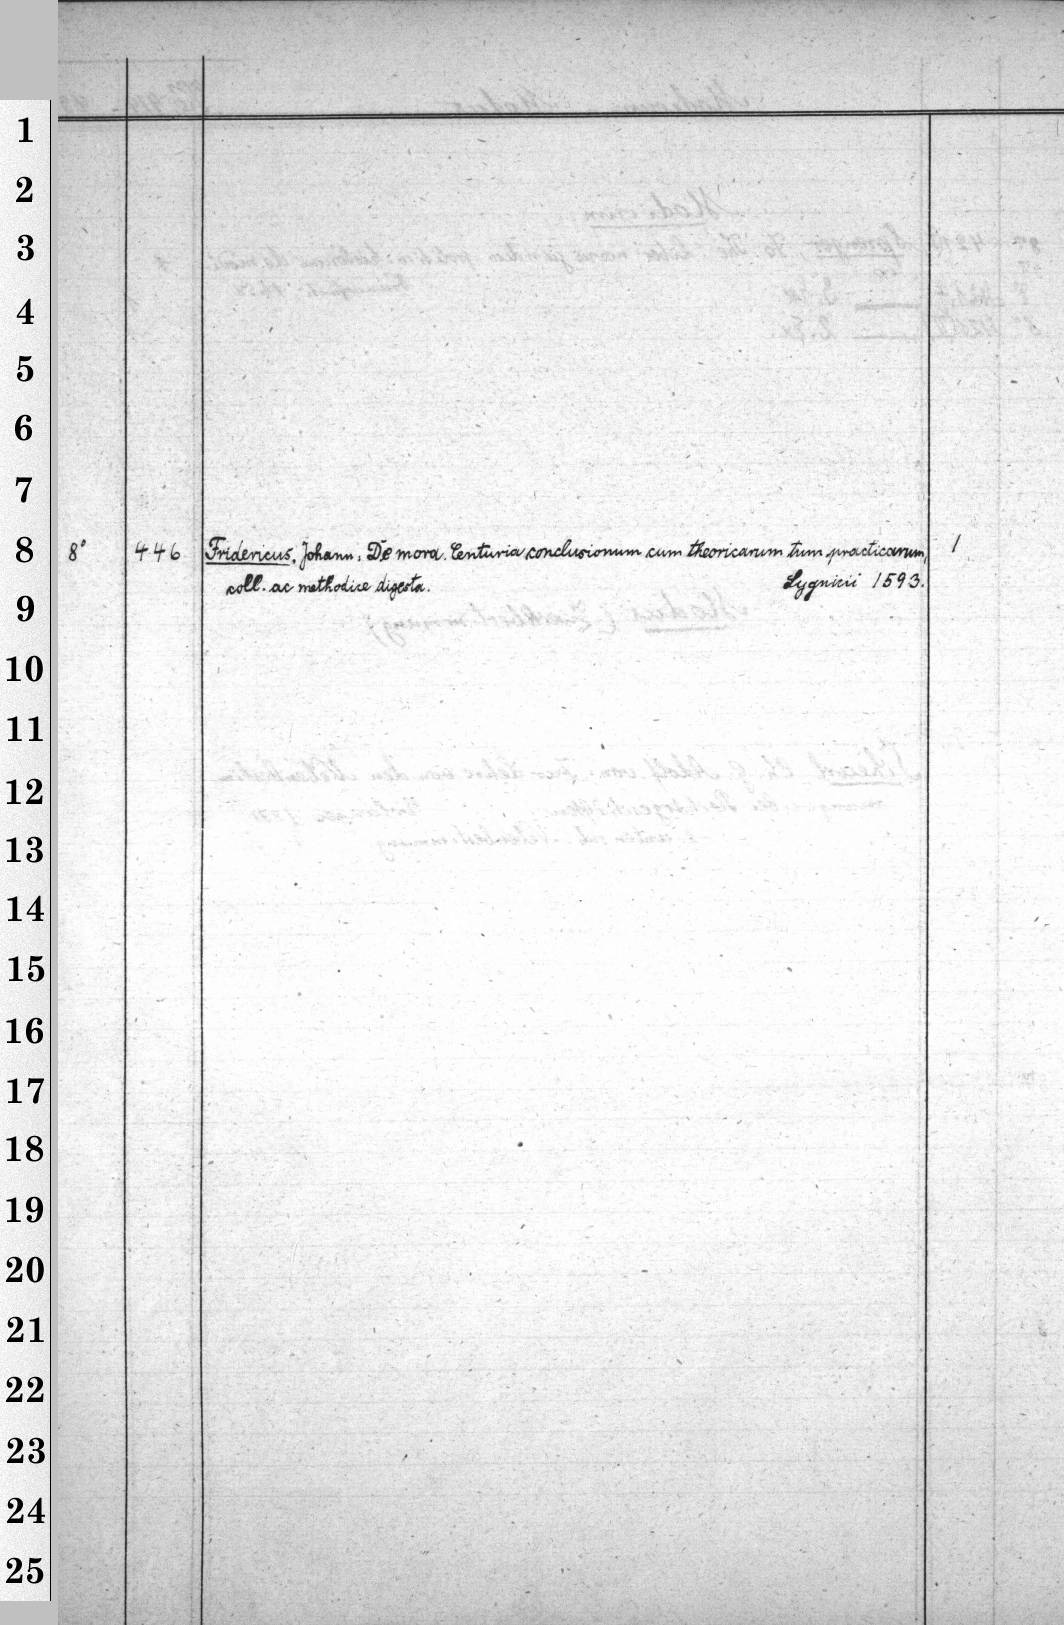 1
2
3
4
5
6
7
8 8° 446 Fridericus, Johann: De mora. Centuria conclusionum cum theoricarum tum practicarum, 1
coll. ac methodice digesta. Lygnicii 1593.
9
10
11
12
13
14
15
16
17
18
19
20
21
22
23
24
25